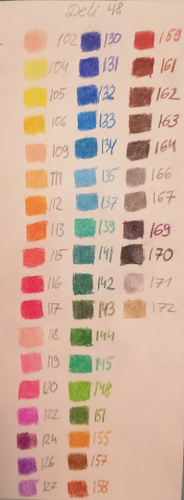 Deli 48
102 130 159
104 131 161
105 132 162
106 133 163
109 134 164
111 135 166
112 137 167
113 139 169
115 141 170
116 142 171
117 143 172
118 144
119 145
120 148
122 151
124 155
126 157
127 158